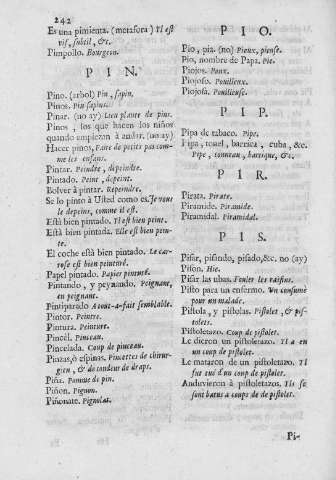 242
Es una pimienta. (metafora) Il est
vif, subtil, &c.
Pimpollo. Bourgeon.
PIN.
Pino. (arbol) Pin, sapin.
Pinos. Pin sapins.
Pinar. (no ay) Lieu planté de pins.
Pinos, los que hacen los niños
quando empiezan à andar. (no ay)
Hacer pinos, Faire de petits pas com-
me les enfans.
Pintar. Peindre, depeindre.
Pintado. Peint, depeint.
Bolver à pintar. Repeindre.
Se lo pinto à Usted como es. Je vous
le depeins, comme il est.
Està bien pintado. Il est bien peint.
Està bien pintada. Elle est bien pein-
te.
El coche està bien pintado. Le car-
rose est bien peinturé.
Papel pintado. Papier peinturé.
Pintando, y peynando. Peignant,
en peignant.
Pintiparado A-tout-a-fait semblable.
Pintor. Peintre.
Pintura. Peinture.
Pincèl. Pinceau.
Pincelada. Coup de pinceau.
Pinzas, ò espinos. Pincettes de chirur-
gien, & de tondeur de draps.
Piña. Pomme de pin.
Piñon. Pignon.
Piñonate. Pignolat.
PIO.
Pio, pia. (no) Pieux, pieuse.
Pio, nombre de Papa. Pie.
Piojos. Poux.
Piojoso. Pouilleux.
Piojosa. Pouilleuse.
PIP.
Pipa de tabaco. Pipe.
Pipa, tonel, barrica, cuba, &c.
Pipe, tonneau, barrique, &c.
PIR.
Pirata. Pirate.
Piramide. Piramide.
Piramidal. Piramidal.
PIS.
Pisar, pisando, pisado, &c. no (ay)
Pison. Hie.
Pisar las ubas. Fouler les raisins.
Pisto para un enfermo. Un consumé
pour un malade.
Pistola, y pistolas. Pistolet, & pis-
tolets.
Pistoletazo. Coup de pistolet.
Le dieron un pistoletazo. Il a eu
un coup de pistolet.
Le mataron de un pistoletazo. Il
fut tué d'un coup de pistolet.
Anduvieron à pistoletazos. Ils se
sont batus a coups de de pistolet.
Pi-